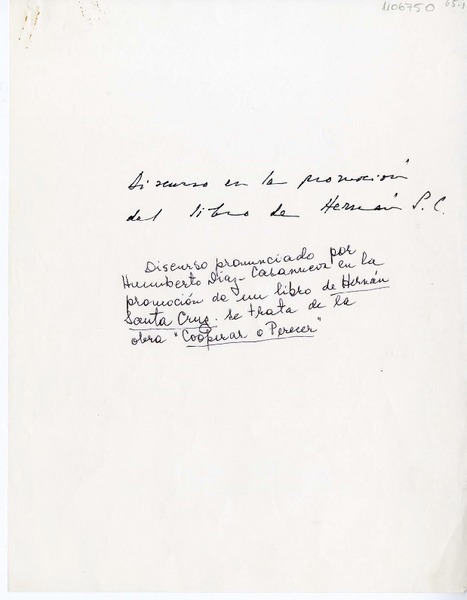 1106750
Discurso en la promoción
del libro de Hernán S. C.
Discurso pronunciado por
Humberto Díaz-Casanueva en la
promoción de un libro de Hernán
Santa Cruz. se trata de la
obra "Cooperar o Perecer"